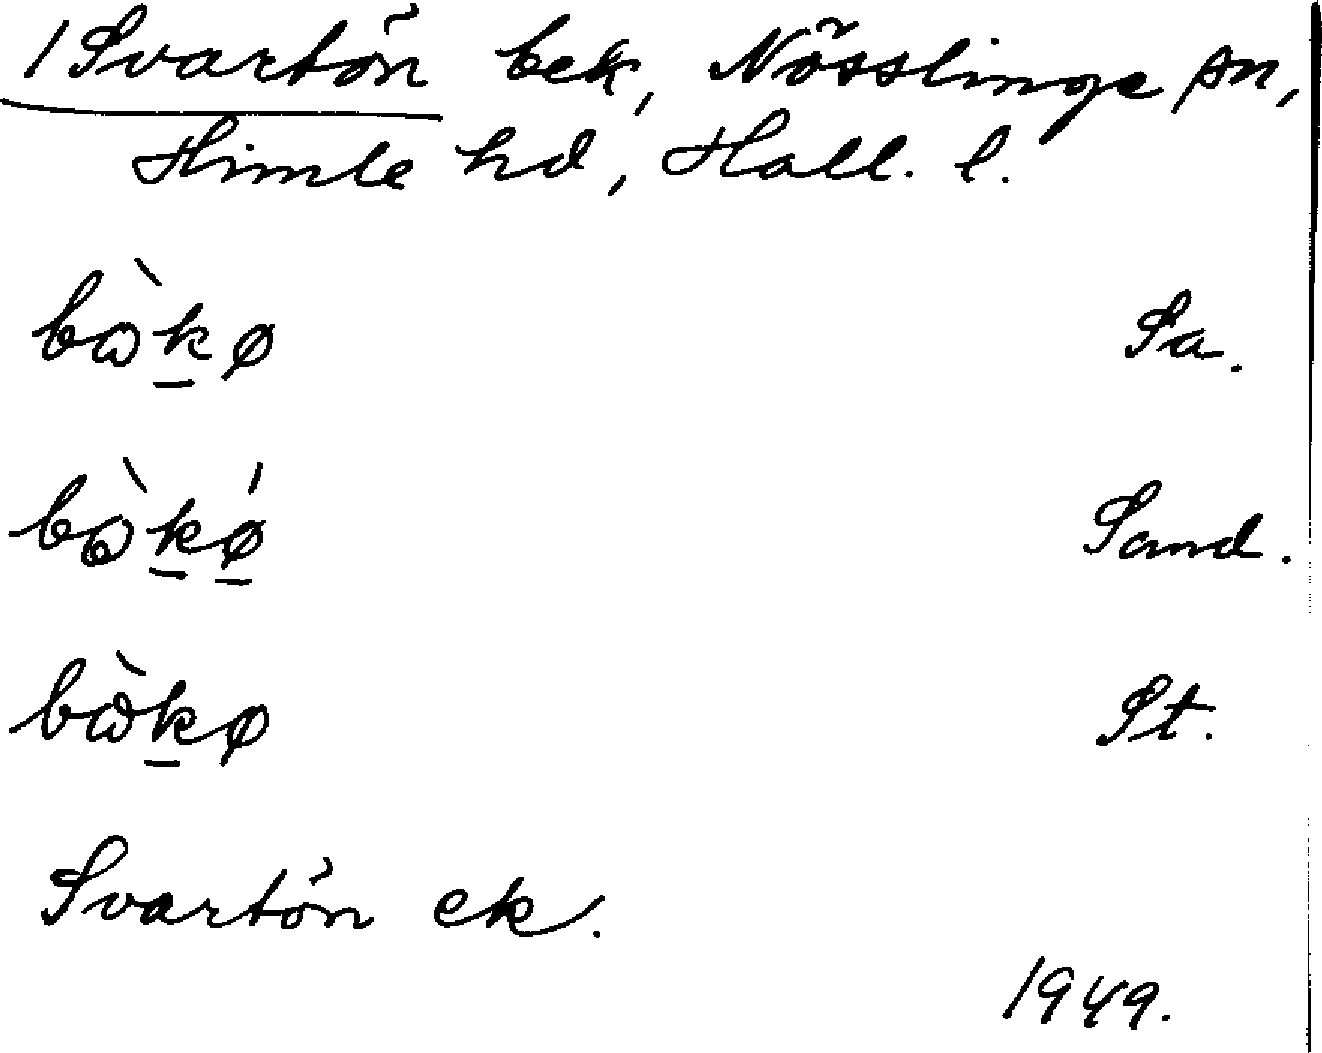 1 Svartön bek, Nösslinge sn,
Himle hd, Hall. l.
bɷ̀k̠ø Sa.
bɷ̀k̠ǿ̠ Sand.
bɷ̀k̠ø St.
Svartön ek.
1949.